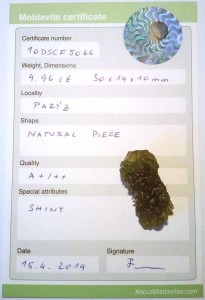 Moldavite certificate
Certificate number
10DSCF5066
Weight, Dimensions
9.96 ct 30x14x10mm
Locality
Shape
NATURAL PIECE
Quality
A+/++
Special attributes
SHINY
Date
Signature
15.4. 2014
AboutMoldavites.com